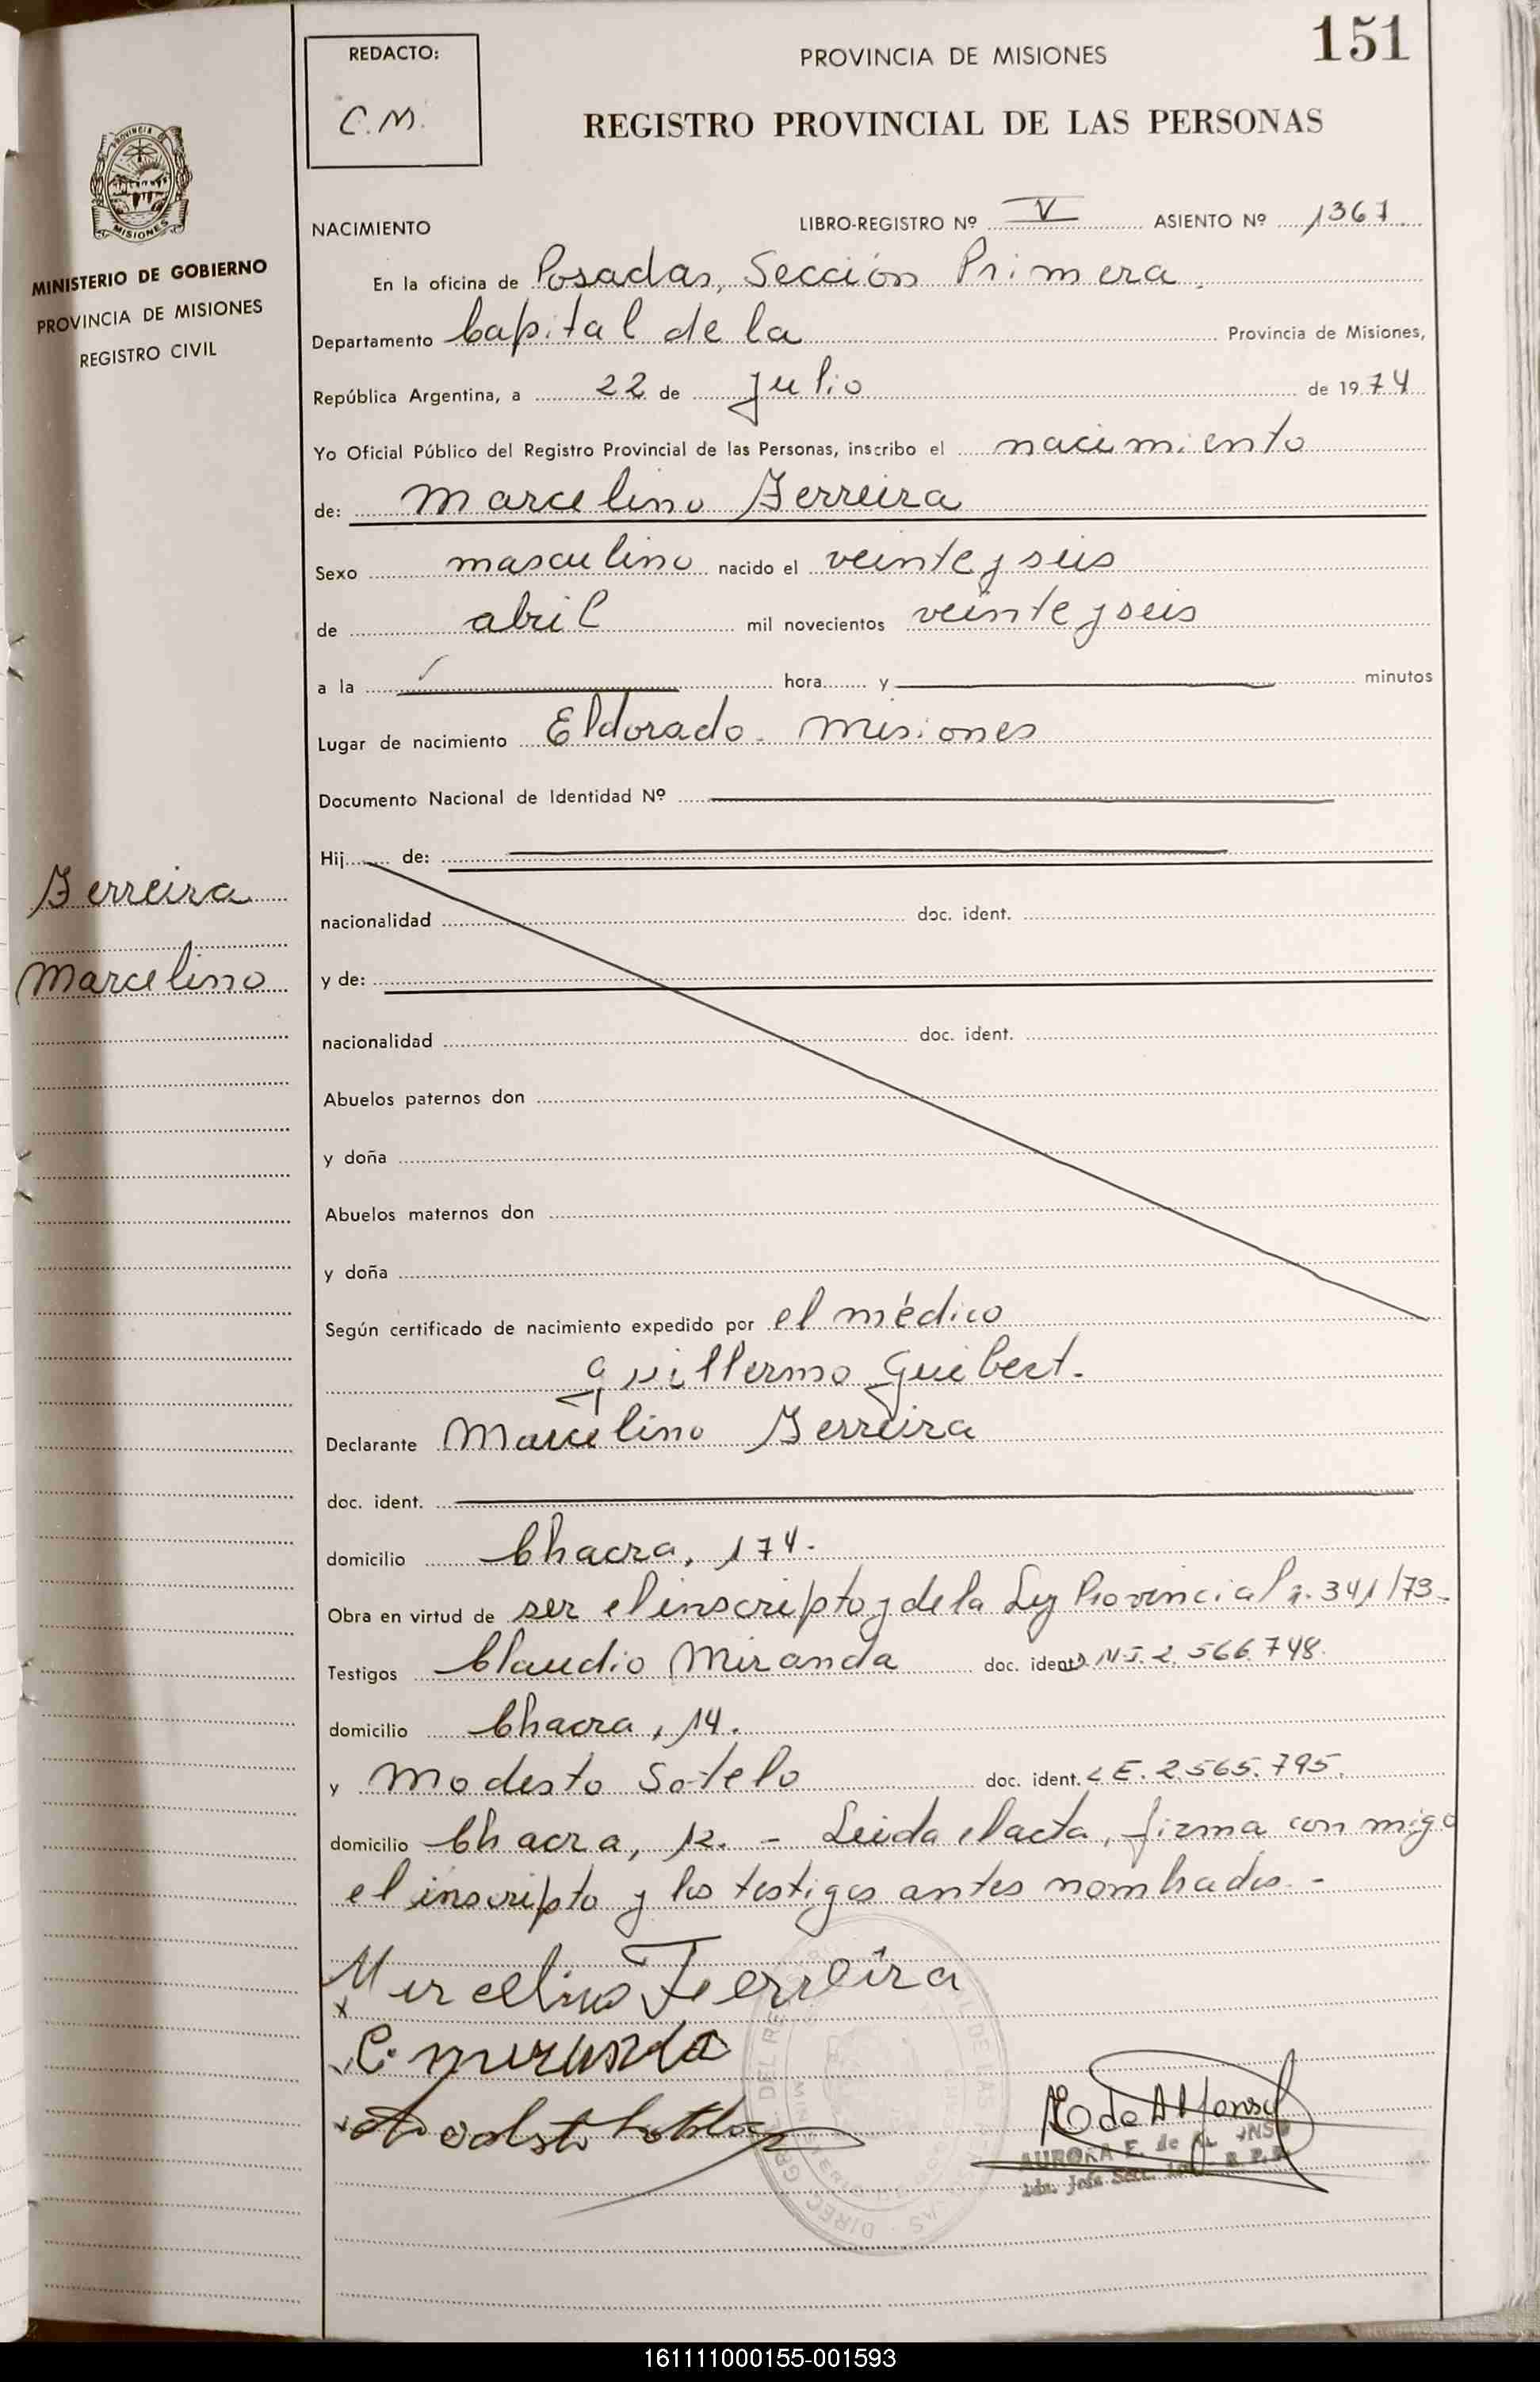 151
REDACTO:
C.M.
PROVINCIA DE MISIONES
REGISTRO PROVINCIAL DE LAS PERSONAS
PROVINCIA DE
MISIONES
MINISTERIO DE GOBIERNO
PROVINCIA DE MISIONES
REGISTRO CIVIL
NACIMIENTO LIBRO-REGISTRO Nº V ASIENTO Nº 1367
En la oficina de Posadas, Sección Primera.
Departamento Capital de la Provincia de Misiones,
República Argentina, a 22 de Julio de 1974
Yo Oficial Público del Registro Provincial de las Personas, inscribo el nacimiento
de: Marcelino Ferreira
Sexo masculino nacido el veinte y seis
de abril mil novecientos veinte y seis
a la hora y minutos
Lugar de nacimiento Eldorado. Misiones
Documento Nacional de Identidad Nº
Hij de:
Ferreira
Marcelino
nacionalidad doc. ident.
y de:
nacionalidad doc. ident.
Abuelos paternos don
y doña
Abuelos maternos don
y doña
Según certificado de nacimiento expedido por el médico
Guillermo Guibert.
Declarante Marcelino Ferreira
doc. ident.
domicilio Chacra, 174.
Obra en virtud de ser el inscripto y de la Ley Provincial n. 341/73-
Testigos Claudio Miranda doc. ident. M.I. 2.566.748.
domicilio Chacra, 14.
y Modesto Sotelo doc. ident. L E. 2.565.795.
domicilio Chacra, 12. - Leida el acta, firma con migo
el inscripto y los testigos antes nombrados. -
x Marcelino Ferreira
C. miranda
x Modesto Sotelo
E de Alfonso
AURORA E. de
161111000155-001593